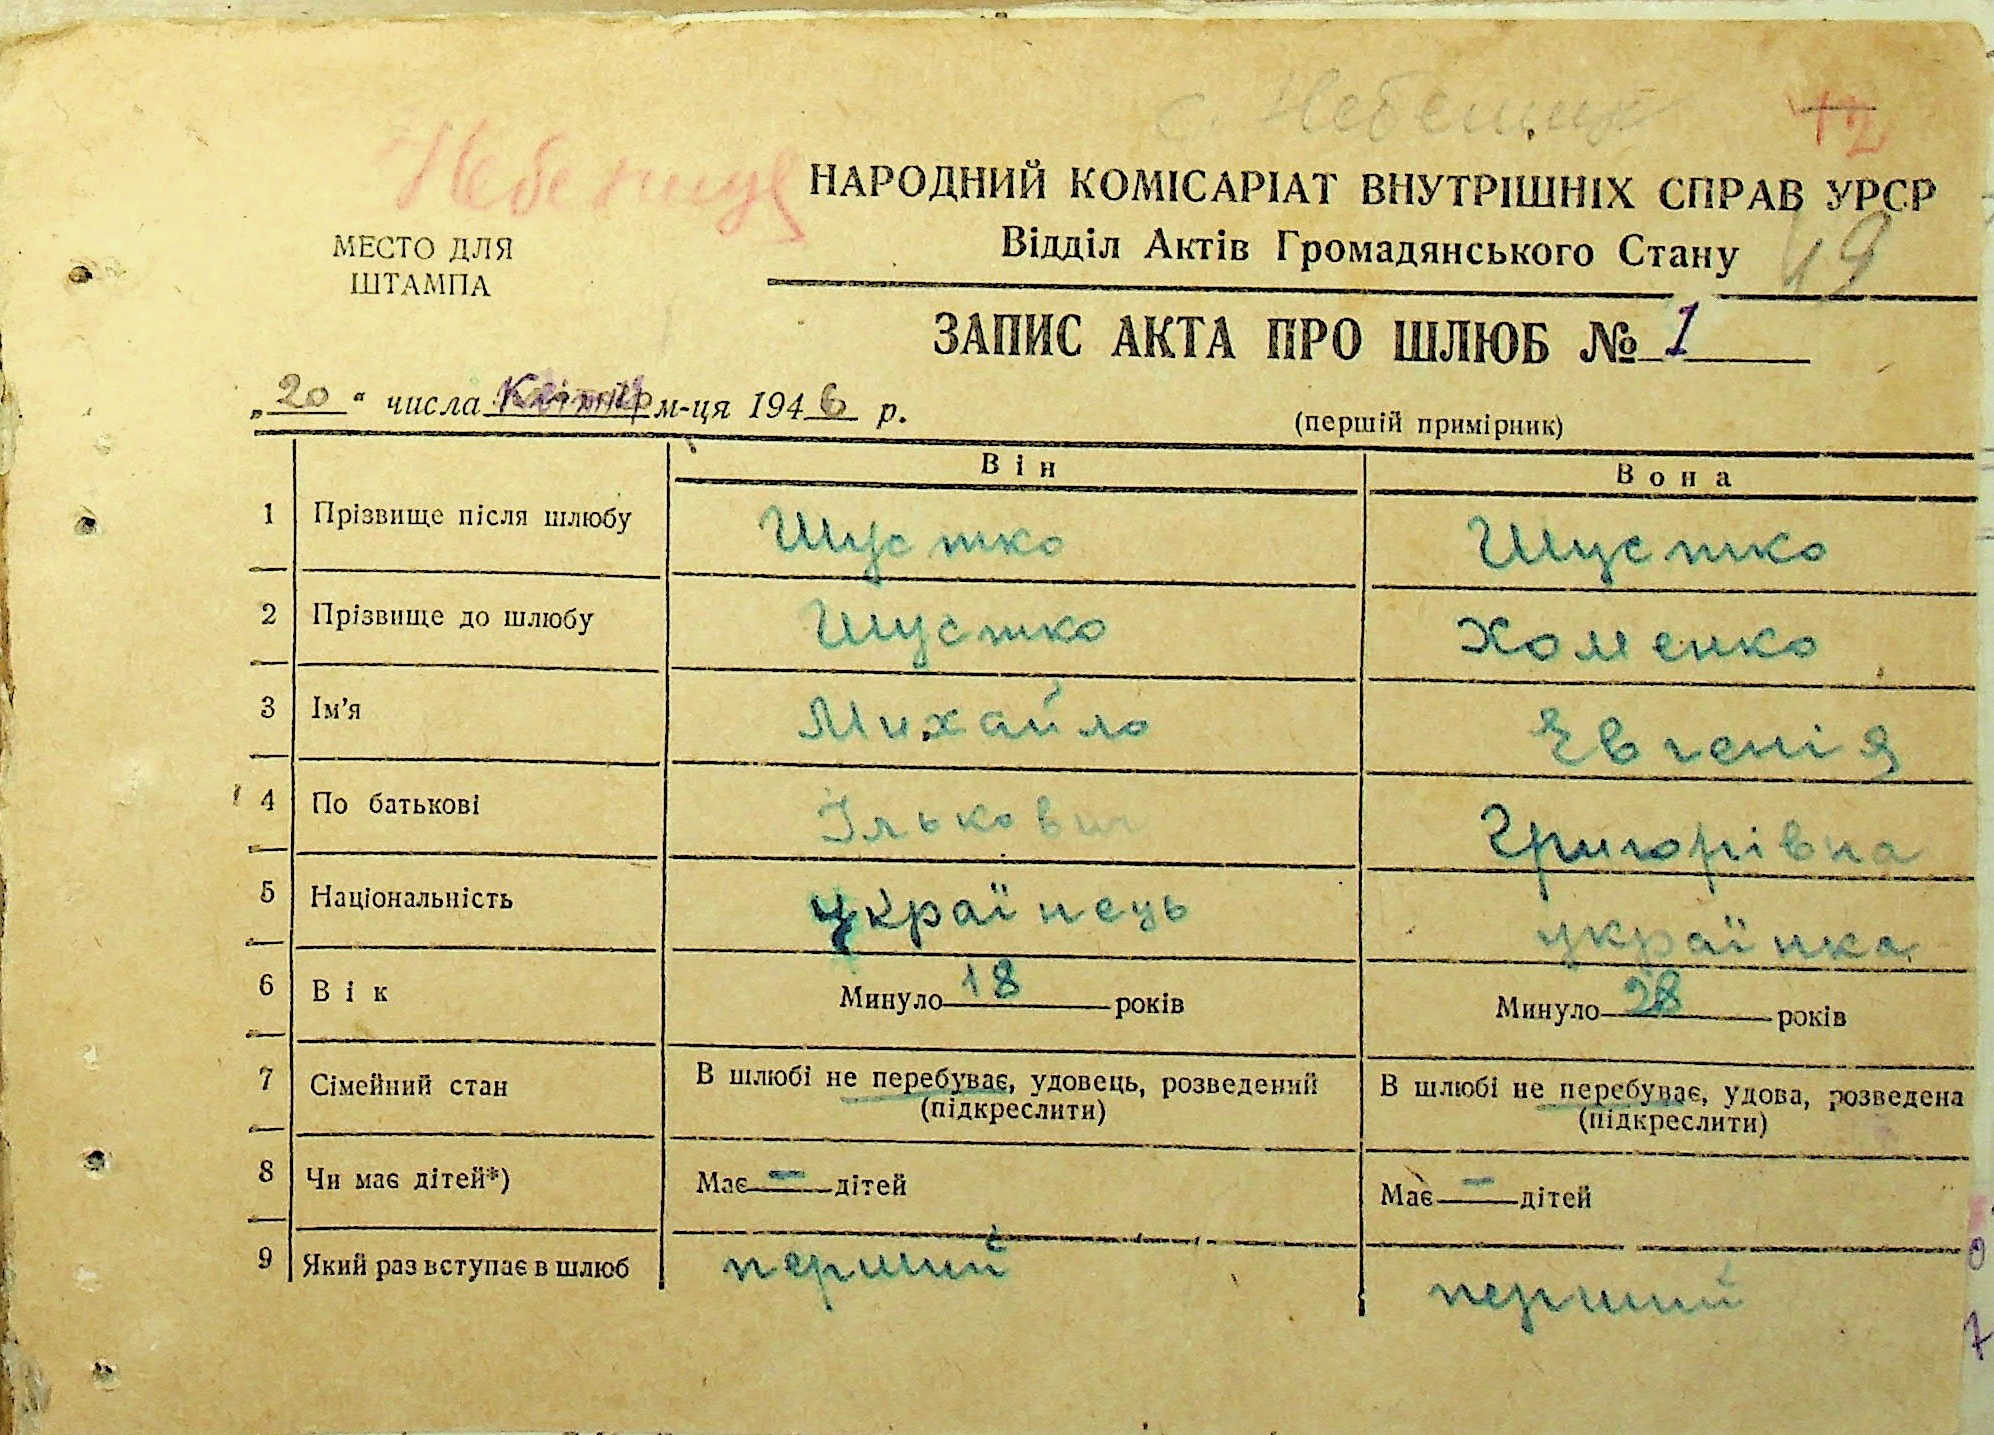 с. Небелиця
Небелиця
12
НАРОДНИЙ КОМІСАРІАТ ВНУТРІШНІХ СПРАВ УРСР
МЕСТО ДЛЯ
ШТАМПА
Відділ Актів Громадянського Стану
49
ЗАПИС АКТА ПРО ШЛЮБ № 1
„20“ числа Квітня м-ця 1946 р.
(першій примірник)
Він Вона
1 Прізвище після шлюбу Шустко Шустко
2 Прізвище до шлюбу Шустко Хоменко
3 Ім’я Михайло Евгенія
4 По батькові Ількович Григорівна
5 Національність українець українка
6 Вік Минуло 18 років Минуло 28 років
7 Сімейний стан В шлюбі не перебуває, удовець, розведений В шлюбі не перебуває, удова, розведена
(підкреслити) (підкреслити)
8 Чи має дітей*) Має — дітей Має — дітей
9 Який раз вступає в шлюб перший перший